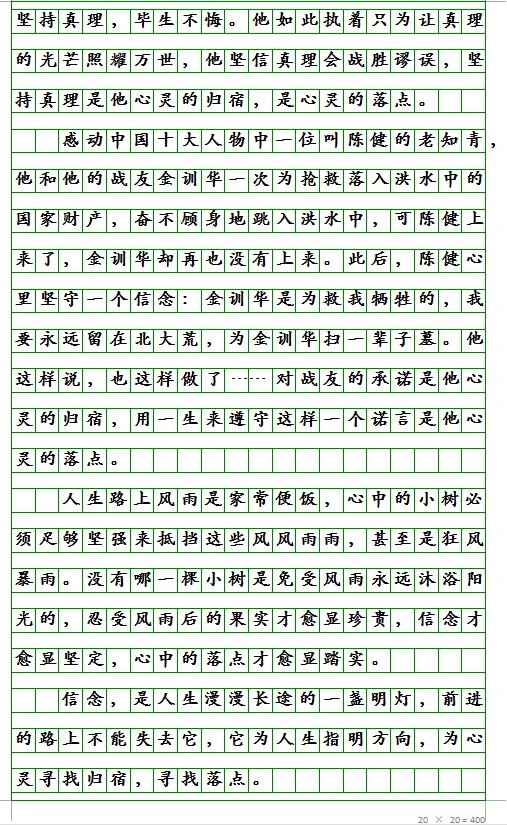 坚持真理，毕生不悔。他如此执着只为让真理
的光芒照耀万世，他坚信真理会战胜谬误，坚
持真理是他心灵的归宿，是心灵的落点。
感动中国十大人物中一位叫陈健的老知青，
他和他的战友金训华一次为抢救落入洪水中的
国家财产，奋不顾身地跳入洪水中，可陈健上
来了，金训华却再也没有上来。此后，陈健心
里坚守一个信念：金训华是为救我牺牲的，我
要永远留在北大荒，为金训华扫一辈子墓。他
这样说，也这样做了……对战友的承诺是他心
灵的归宿，用一生来遵守这样一个诺言是他心
灵的落点。
人生路上风雨是家常便饭，心中的小树必
须足够坚强来抵挡这些风风雨雨，甚至是狂风
暴雨。没有哪一棵小树是免受风雨永远沐浴阳
光的，忍受风雨后的果实才愈显珍贵，信念才
愈显坚定，心中的落点才愈显踏实。
信念，是人生漫漫长途的一盏明灯，前进
的路上不能失去它，它为人生指明方向，为心
灵寻找归宿，寻找落点。
20 × 20 = 400